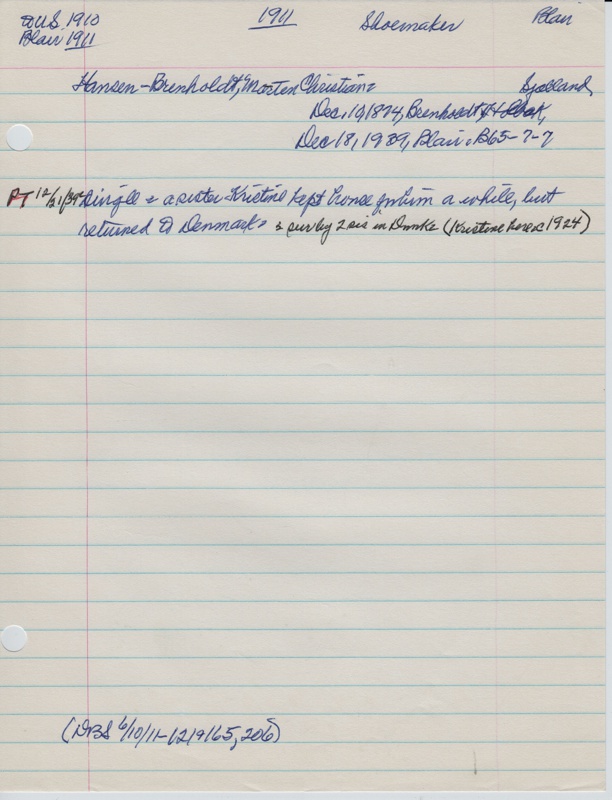 to U.S. 1910 1911 Shoemaker Blair
Blair 1911
Hansen-Brenholdt, Morten Christian = Sjælland,
Dec. 19, 1874, Brenholdt, Holbæk,
Dec 18, 1939, Blair. B65-7-7
PT 12/21/39 Single = a sister Kristine kept house f. him a while, but
returned to Denmark = sur by 2 sis in Dmke (Kristine here 1924)
(DBS 6/10/11-12/9165, 206)